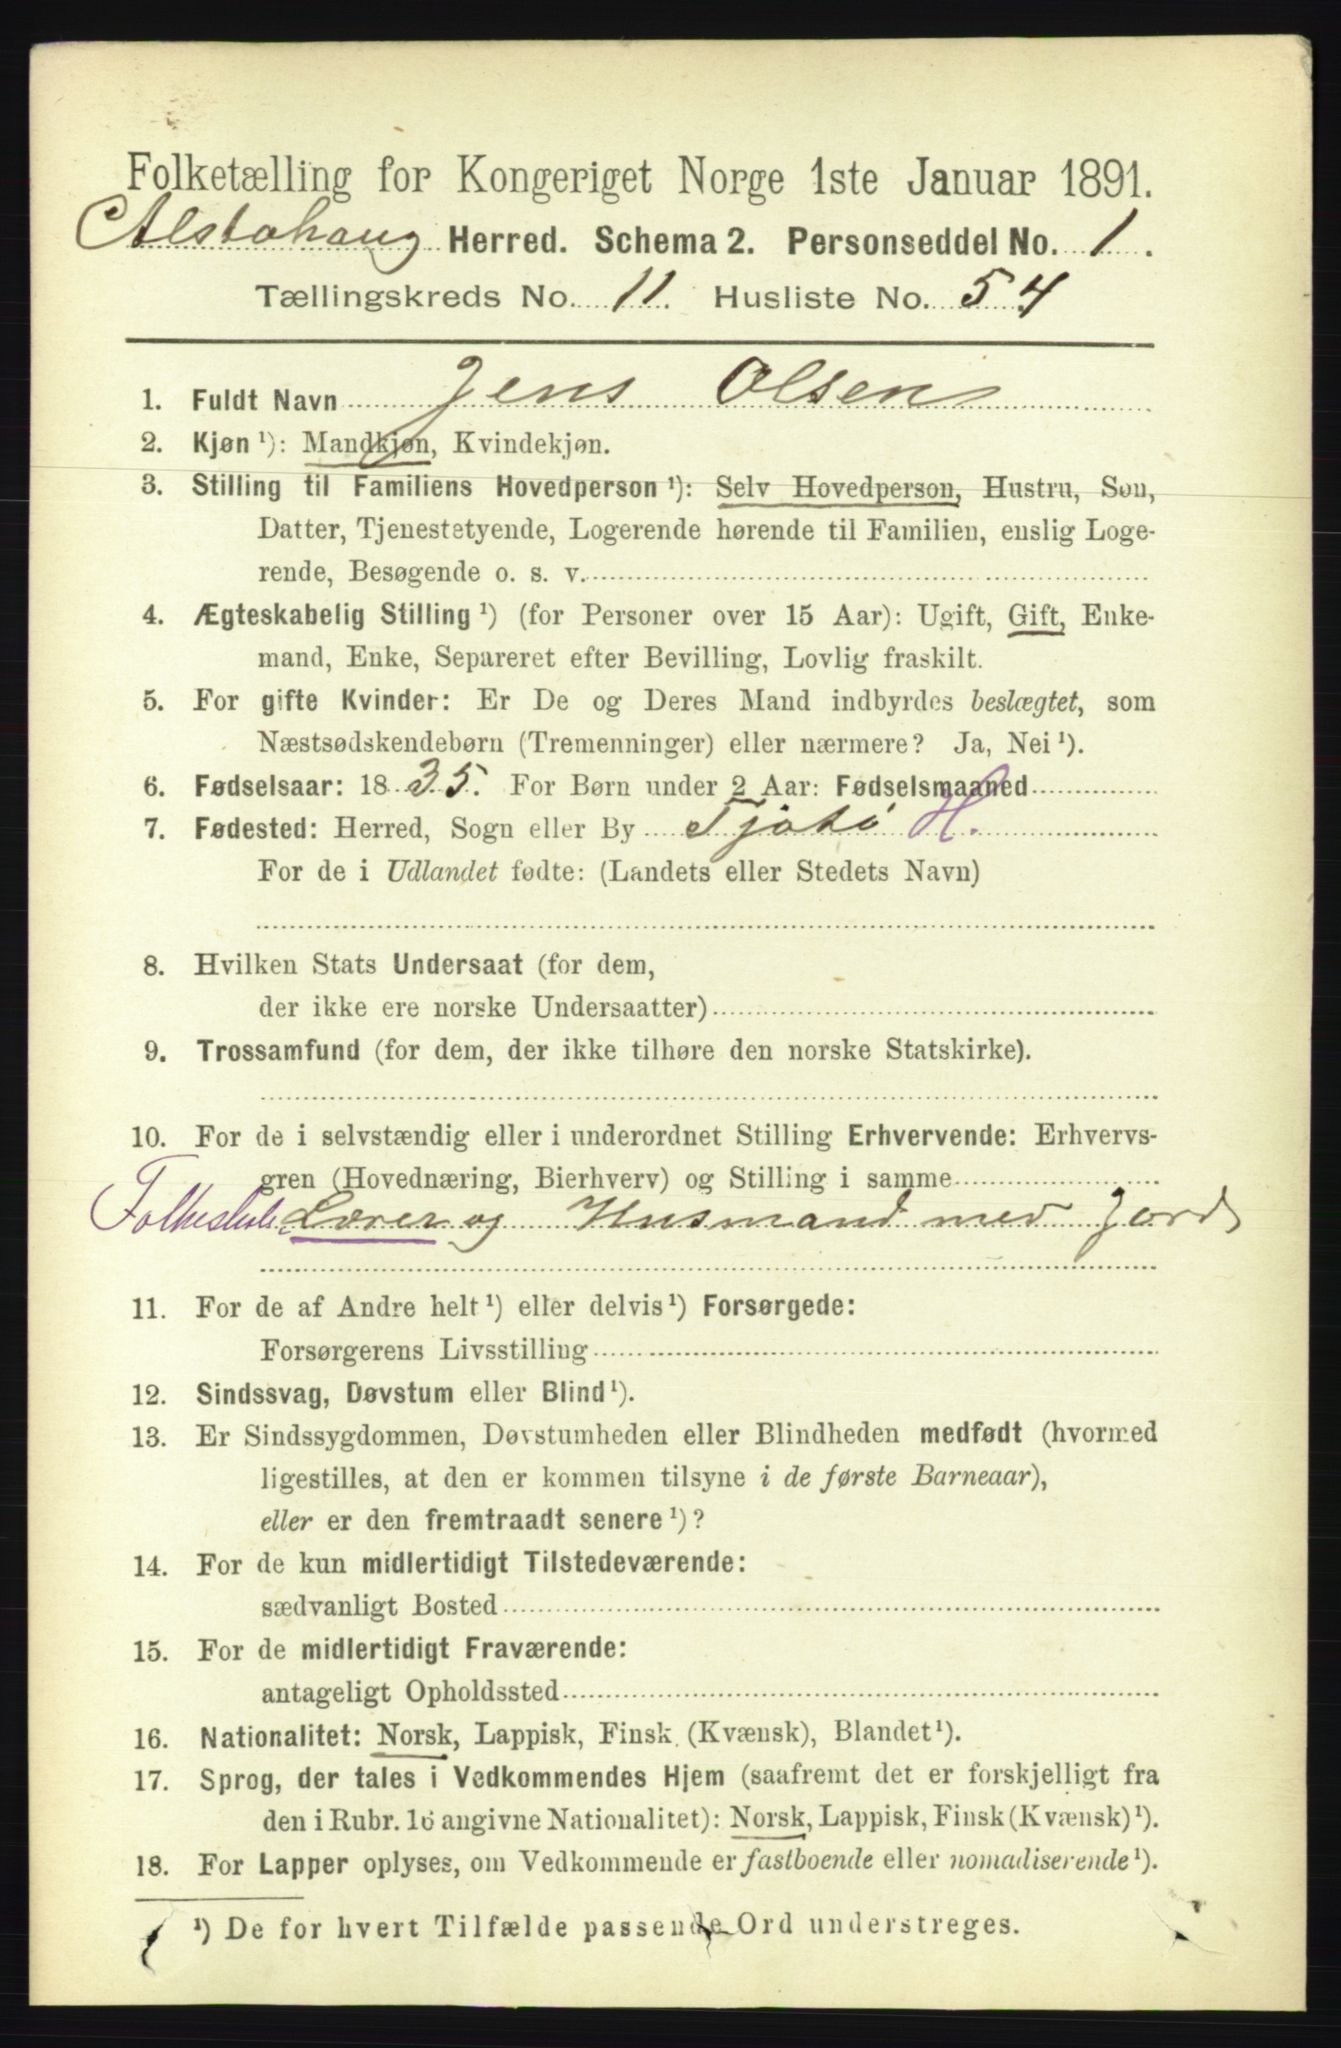 Folketælling for Kongeriget Norge 1ste Januar 1891.
Alstahaug Herred. Schema 2. Personseddel No. 1.
Tællingskreds No. 11. Husliste No. 54
1. Fuldt Navn Jens Olsen
2. Kjøn ¹): Mandkjøn, Kvindekjøn.
3. Stilling til Familiens Hovedperson ¹): Selv Hovedperson, Hustru, Søn,
Datter, Tjenestetyende, Logerende hørende til Familien, enslig Loge-
rende, Besøgende o. s. v.
4. Ægteskabelig Stilling ¹) (for Personer over 15 Aar): Ugift, Gift, Enke-
mand, Enke, Separeret efter Bevilling, Lovlig fraskilt.
5. For gifte Kvinder: Er De og Deres Mand indbyrdes beslægtet, som
Næstsødskendebørn (Tremenninger) eller nærmere? Ja, Nei ¹).
6. Fødselsaar: 1835. For Børn under 2 Aar: Fødselsmaaned
7. Fødested: Herred, Sogn eller By Tjøtø H.
For de i Udlandet fødte: (Landets eller Stedets Navn)
8. Hvilken Stats Undersaat (for dem,
der ikke ere norske Undersaatter)
9. Trossamfund (for dem, der ikke tilhøre den norske Statskirke).
10. For de i selvstændig eller i underordnet Stilling Erhvervende: Erhvervs-
gren (Hovednæring, Bierhverv) og Stilling i samme
Folkeskole Lærer og Husmand med Jord
11. For de af Andre helt ¹) eller delvis ¹) Forsørgede:
Forsørgerens Livsstilling
12. Sindssvag, Døvstum eller Blind ¹).
13. Er Sindssygdommen, Døvstumheden eller Blindheden medfødt (hvormed
ligestilles, at den er kommen tilsyne i de første Barneaar),
eller er den fremtraadt senere ¹)?
14. For de kun midlertidigt Tilstedeværende:
sædvanligt Bosted
15. For de midlertidigt Fraværende:
antageligt Opholdssted
16. Nationalitet: Norsk, Lappisk, Finsk (Kvænsk), Blandet ¹).
17. Sprog, der tales i Vedkommendes Hjem (saafremt det er forskjelligt fra
den i Rubr. 16 angivne Nationalitet): Norsk, Lappisk, Finsk (Kvænsk) ¹).
18. For Lapper oplyses, om Vedkommende er fastboende eller nomadiserende ¹).
¹) De for hvert Tilfælde passende Ord understreges.